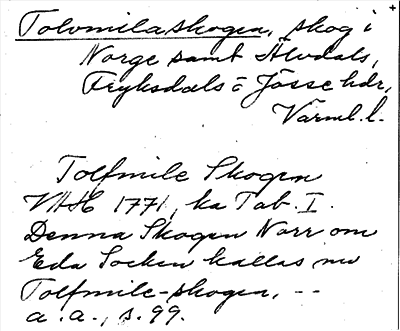 Tolvmilaskogen, skog i
Norge samt Älvdals,
Fryksdals o Jösse hdr,
Värml. l.
Tolfmile Skogen
VAH 1771, ka Tab. I.
Denna Skogen Norr om
Eda Socken kallas nu
Tolfmile-skogen, --
a. a., s. 99.